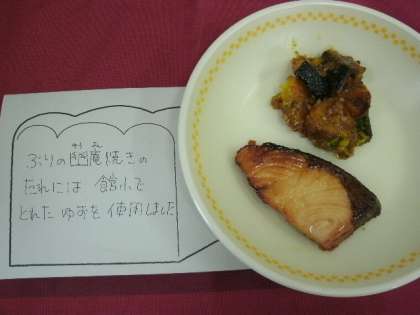 ぶりの幽庵焼きの
たれには 館小で
とれた ゆずを 使用しました